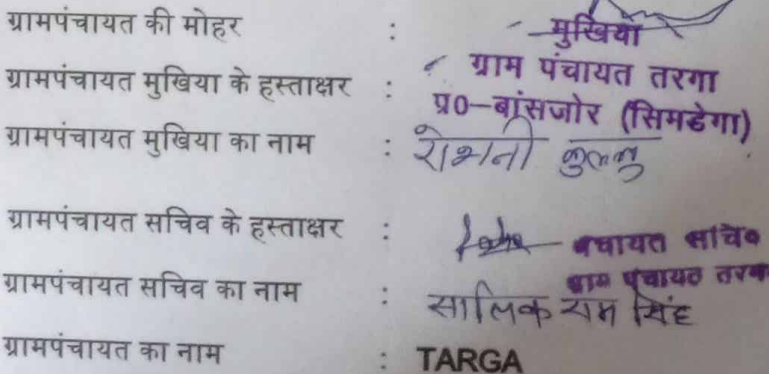 ग्रामपंचायत की मोहर : मुखिया
ग्रामपंचायत मुखिया के हस्ताक्षर : ग्राम पंचायत तरगा
प्र०-बांसजोर (सिमडेगा)
ग्रामपंचायत मुखिया का नाम : रोशनी कुल्लु
ग्रामपंचायत सचिव के हस्ताक्षर : पंचायत सचिव
ग्राम पंचायत तरगा
ग्रामपंचायत सचिव का नाम : सालिक राम सिंह
ग्रामपंचायत का नाम : TARGA